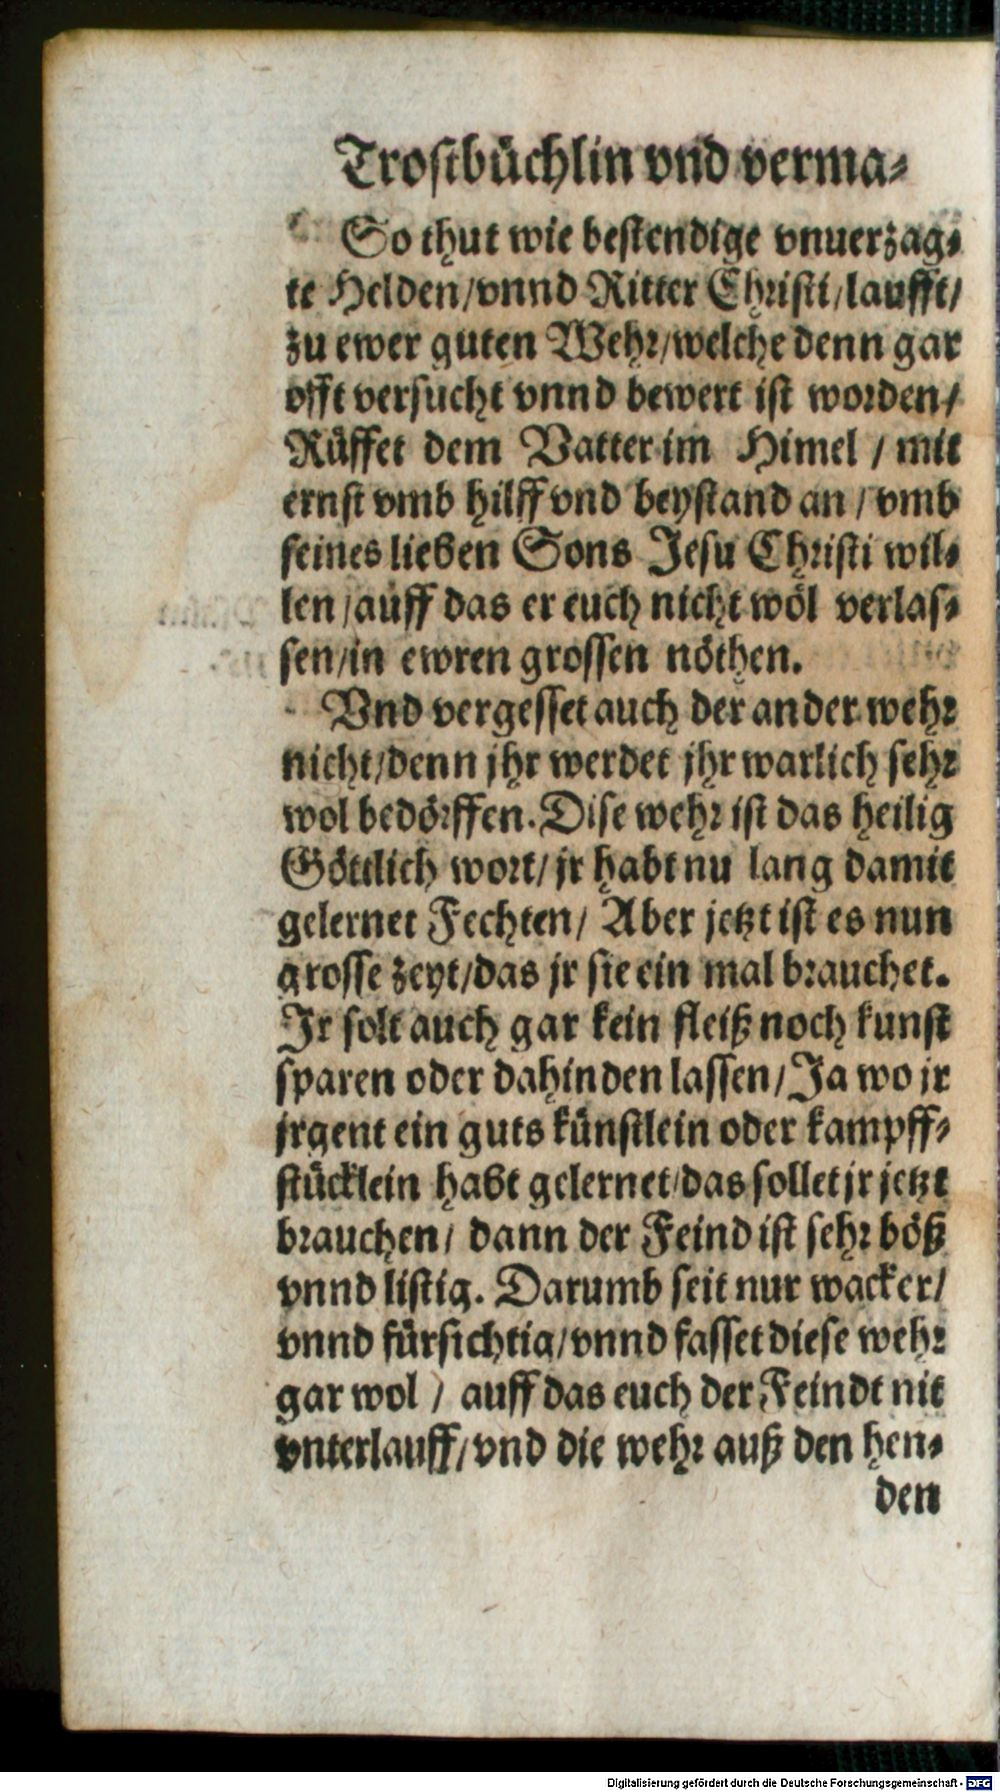 Trostbüchlin vnd verma-
So thut wie bestendige vnuerzag-
te Helden/vnnd Ritter Christi/laufft/
zu ewer guten Wehr/welche denn gar
offt versucht vnnd bewert ist worden/
Rüffet dem Vatter im Himel / mit
ernst vmb hilff vnd beystand an / vmb
seines lieben Sons Jesu Christi wil-
len/auff das er euch nicht wöl verlas-
sen/in ewren grossen nöthen.
Vnd vergesset auch der ander wehr
nicht/denn jhr werdet jhr warlich sehr
wol bedörffen. Dise wehr ist das heilig
Göttlich wort/ jr habt nu lang damit
gelernet Fechten/ Aber jetzt ist es nun
grosse zeyt/das jr sie ein mal brauchet.
Jr solt auch gar kein fleiß noch kunst
sparen oder dahinden lassen/Ja wo jr
jrgent ein guts künstlein oder kampff-
stücklein habt gelernet/das sollet jr jetzt
brauchen/ dann der Feind ist sehr böß
vnnd listig. Darumb seit nur wacker/
vnnd fürsichtig/vnnd fasset diese wehr
gar wol / auff das euch der Feindt nit
vnterlauff/vnd die wehr auß den hen-
den
Digitalisierung gefördert durch die Deutsche Forschungsgemeinschaft - DFG